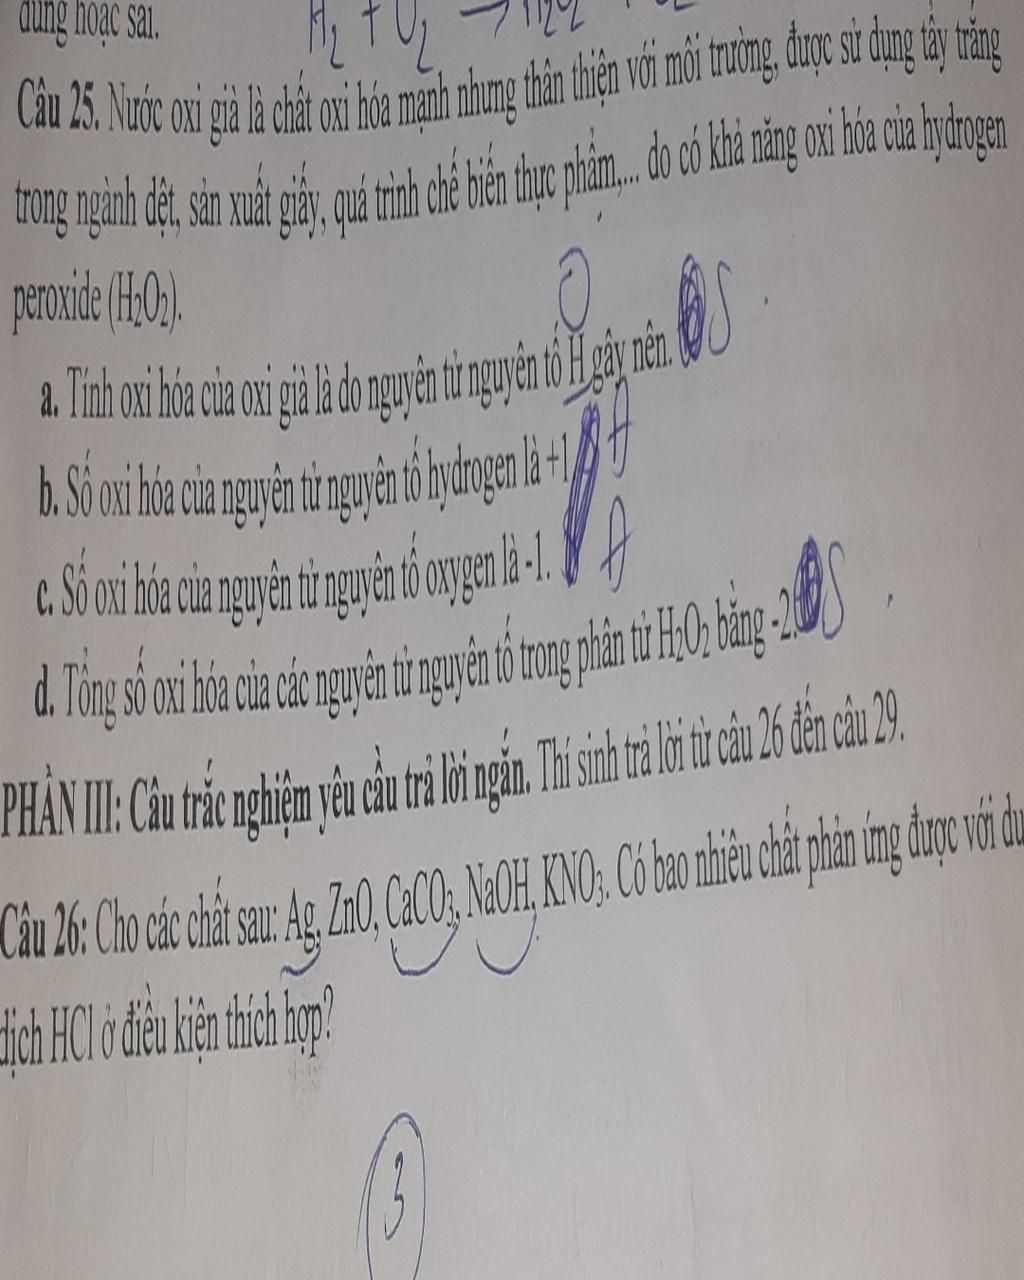 đúng hoặc sai.
H2 + O2 → H2O2
Câu 25. Nước oxi già là chất oxi hóa mạnh nhưng thân thiện với môi trường, được sử dụng tẩy trắng
trong ngành dệt, sản xuất giấy, quá trình chế biến thực phẩm,... do có khả năng oxi hóa của hydrogen
peroxide (H₂O₂).
O
a. Tính oxi hóa của oxi già là do nguyên tử nguyên tố H gây nên. S
b. Số oxi hóa của nguyên tử nguyên tố hydrogen là +1 Đ
c. Số oxi hóa của nguyên tử nguyên tố oxygen là -1. Đ
d. Tổng số oxi hóa của các nguyên tử nguyên tố trong phân tử H₂O₂ bằng -2. S
PHẦN III: Câu trắc nghiệm yêu cầu trả lời ngắn. Thí sinh trả lời từ câu 26 đến câu 29.
Câu 26: Cho các chất sau: Ag, ZnO, CaCO₃, NaOH, KNO₃. Có bao nhiêu chất phản ứng được với du
dịch HCl ở điều kiện thích hợp?
3